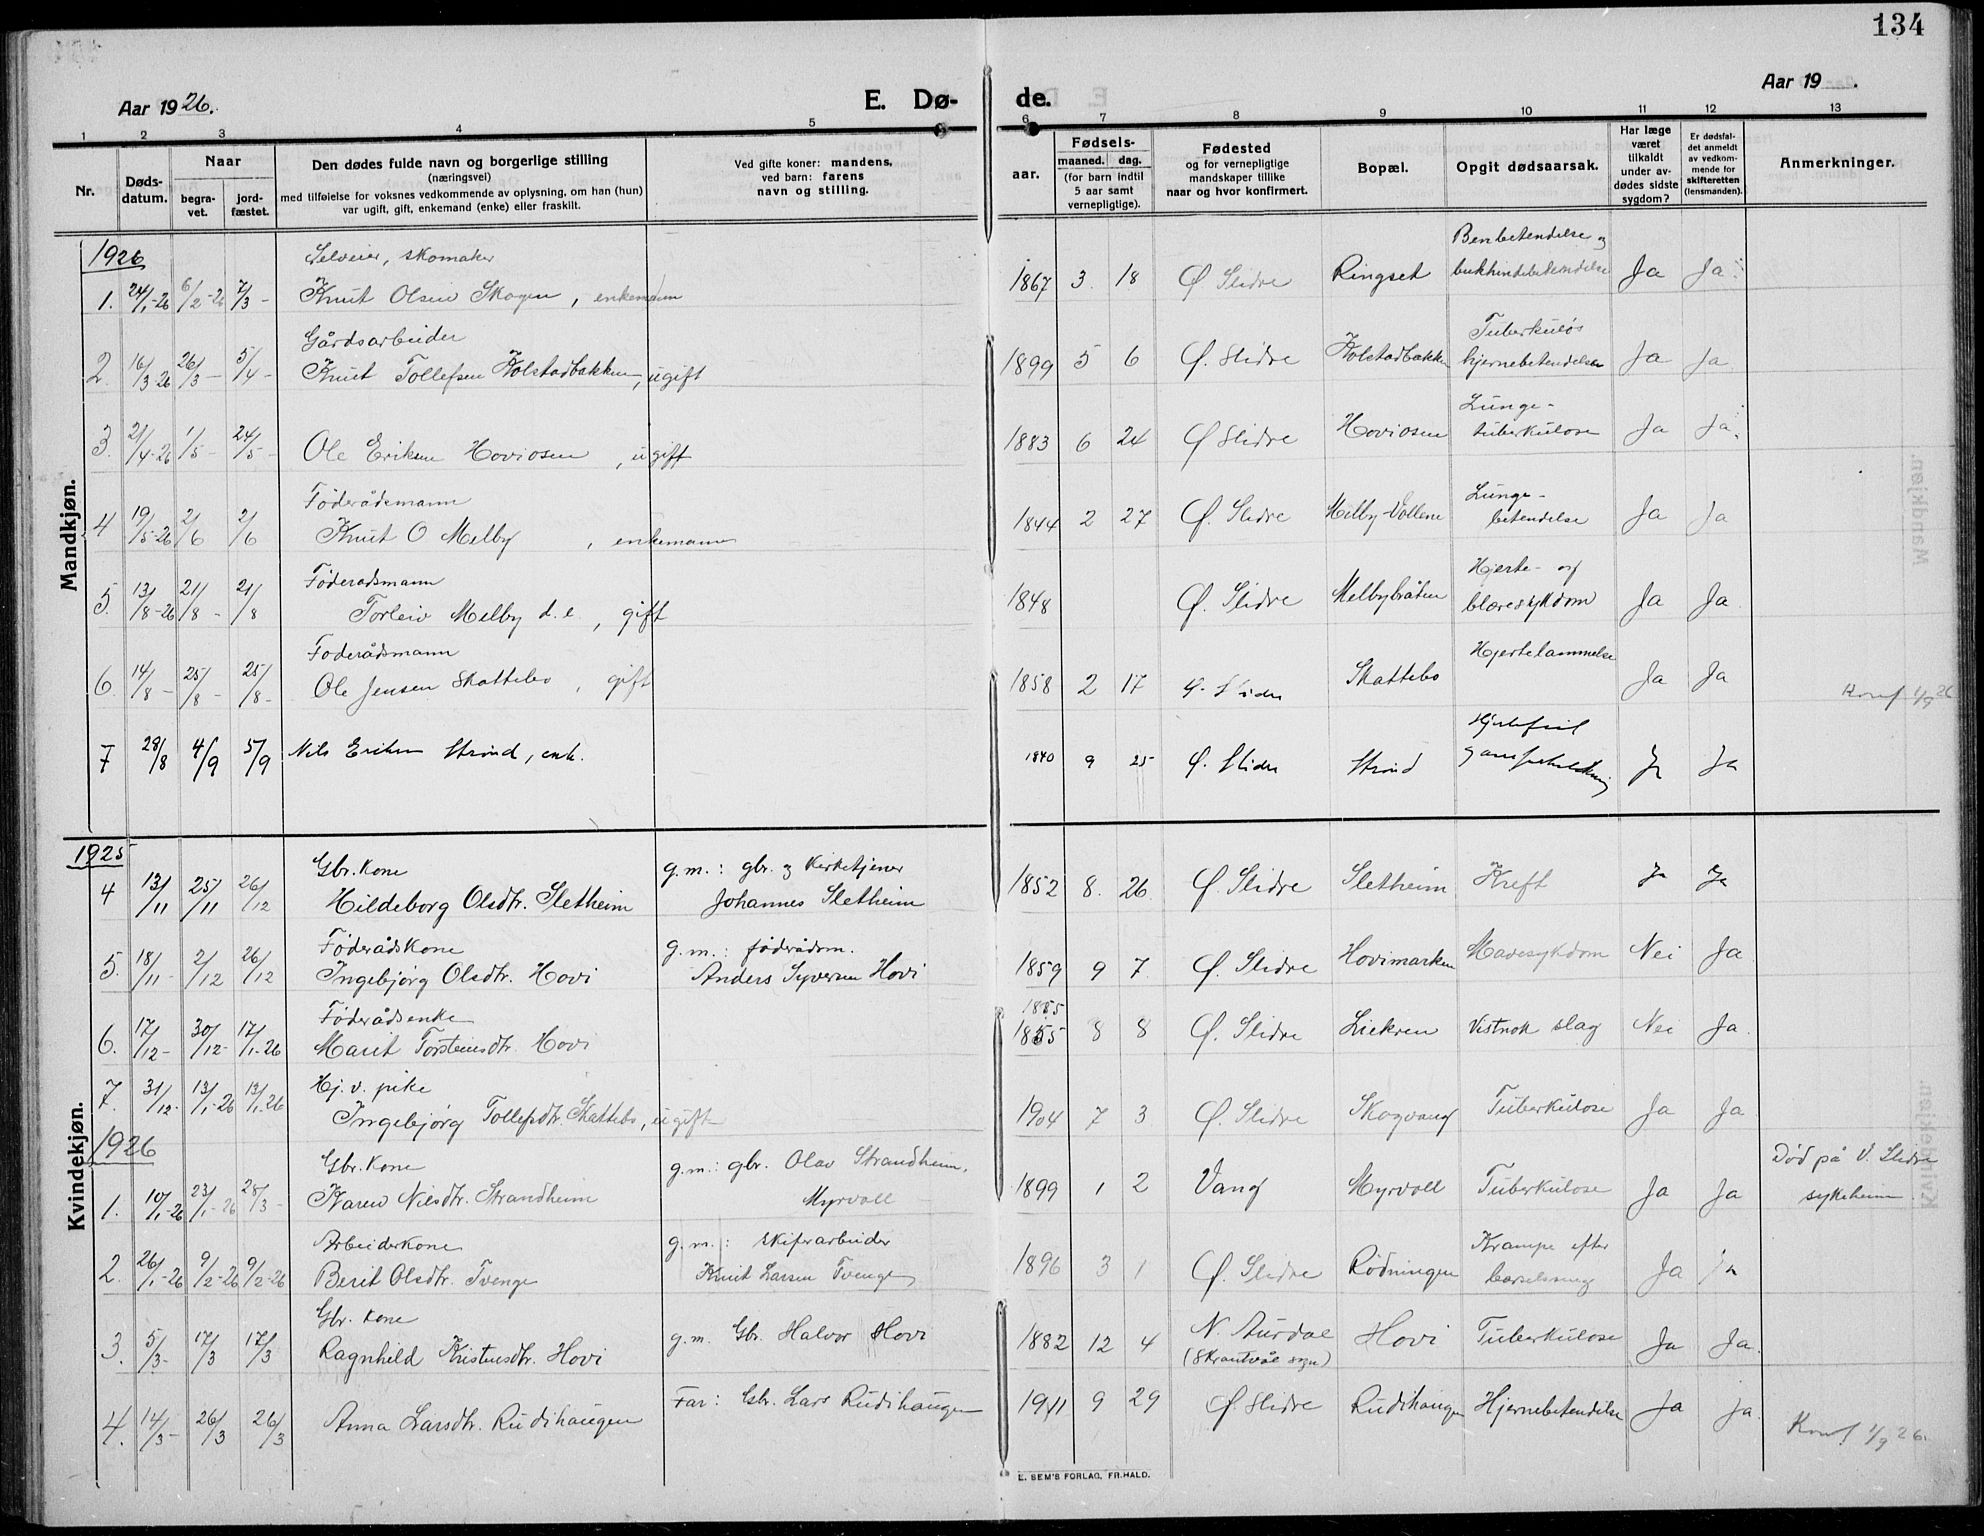 134
Aar 1926.
E. Dø-
de.
Aar 19 .
1 2 3 4 5 6 7 8 9 10 11 12 13
Nr.
Døds-
datum.
Naar
begra-
vet.
jord-
fæstet.
Den dødes fulde navn og borgerlige stilling
(næringsvei)
med tilføielse for voksnes vedkommende av oplysning, om han (hun)
var ugift, gift, enkemand (enke) eller fraskilt.
Ved gifte koner: mandens,
ved barn: farens
navn og stilling.
Fødsels-
aar.
maaned. dag.
(for barn indtil
5 aar samt
vernepligtige).
Fødested
og for vernepligtige
mandskaper tillike
naar og hvor konfirmert.
Bopæl.
Opgit dødsaarsak.
Har læge
været
tilkaldt
under av-
dødes sidste
sygdom?
Er dødsfal-
det anmeldt
av vedkom-
mende for
skifteretten
(lensmanden).
Anmerkninger.
Mandkjøn.
1926
Selveier, skomaker Benbetendelse og
1. 24/1-26 6/2-26 7/3- Knut Olsen Skogen, enkemann 1867 3. 18 Ø Slidre Ringset bukhindebetendelse Ja Ja
Gårdsarbeider Tuberkuløs
2. 16/3-26 26/3- 5/4- Knut Tollefsen Kolstadbakken, ugift 1899 5 6 Ø. Slidre Kolstadbakken hjernebetendelse Ja Ja
Lunge-
3. 21/4-26 1/5- 24/5- Ole Eriksen Hoviosen, ugift 1883 6 24 Ø Slidre Hoviosen tuberkulose Ja Ja.
Føderådsmann Lunge-
4 19/5-26 2/6 2/6 Knut O Melby, enkemann 1844 2 27 Ø. Slidre Melby-Vollene betendelse Ja Ja
Føderådsmann Hjerte- og
5. 13/8-26 21/8- 21/8 Torleiv Melby d.e., gift 1848 Ø. Slidre Melbybråten blæresykdom Ja Ja
Føderådsmann Hjertelammelse
6. 14/8- 25/8- 25/8- Ole Jensen Skattebo, gift 1858 2 17 Ø. Slidre Skattebo Ja Ja
Konf 1/9 26
Hjertefeil
7 28/8 4/9 5/9 Nils Eriksen Strand, enk. 1840 9 25 Ø. Slidre Strand Ja Ja
Kvindekjøn.
1925
Gbr. kone g.m.: gbr. og kirketjener
4 13/11 25/11 26/12 Hildeborg Olsdtr. Sletheim Johannes Sletheim 1852 8. 26 Ø. Slidre Sletheim Kreft Ja Ja
Føderådskone g.m.: føderådsm.
5. 18/11- 2/12 26/12 Ingebjørg Olsdtr. Hovi Anders Syversen Hovi 1859 9 7 Ø. Slidre Hovimarken Mavesykdom Nei Ja
Føderådsenke 1855
6. 17/12- 30/12- 17/1-26 Marit Torsteinsdtr. Hovi 1855 8 8 Ø. Slidre Liekren Vistnok slag Nei Ja.
Hj. v. pike
7. 31/12- 13/1-26 13/1-26 Ingebjørg Tollefsdtr. Skattebo, ugift 1904 7 3 Ø. Slidre Skogvang Tuberkulose Ja Ja
1926
Gbr. kone g.m.: gbr. Olav Strandheim, Død på V. Slidre
1. 10/1-26 23/1-26 28/3- Karen Nilsdtr. Strandheim Myrvoll 1899 1 2 Vang Myrvoll Tuberkulose Ja Ja sykeheim
Arbeiderkone g.m.: skiferarbeider Krampe efter
2. 26/1-26 9/2-26 9/2-26 Berit Olsdtr. Tvenge Knut Larsen Tvenge 1896 3 1 Ø. Slidre Rødningen barselsseng Ja Ja
Gbr. kone
3. 5/3- 17/3 17/3 Ragnhild Kristensdtr. Hovi g.m. Gbr. Halvor Hovi 1882 12 4 N. Aurdal (Skrautvål sogn) Hovi Tuberkulose Ja Ja.
4. 14/3- 26/3 26/3 Anna Larsdtr. Rudihaugen Far: Gbr. Lars Rudihaugen 1911 9 29 Ø. Slidre Rudihaugen Hjernebetendelse Ja Ja.
Konf 1/9 26.
E. SEM'S FORLAG, FR.HALD.